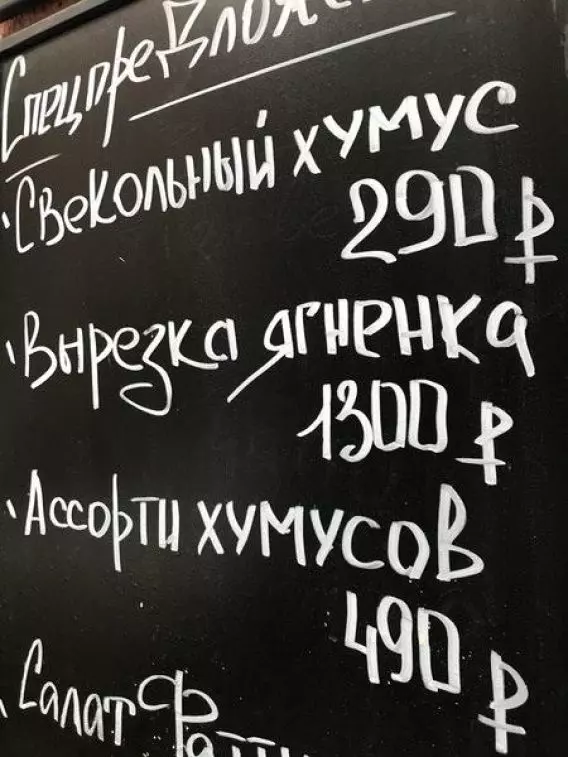 Спецпредложен
Свекольный хумус
290 ₽
Вырезка ягненка
1300 ₽
Ассорти хумусов
490 ₽
Салат Фатту